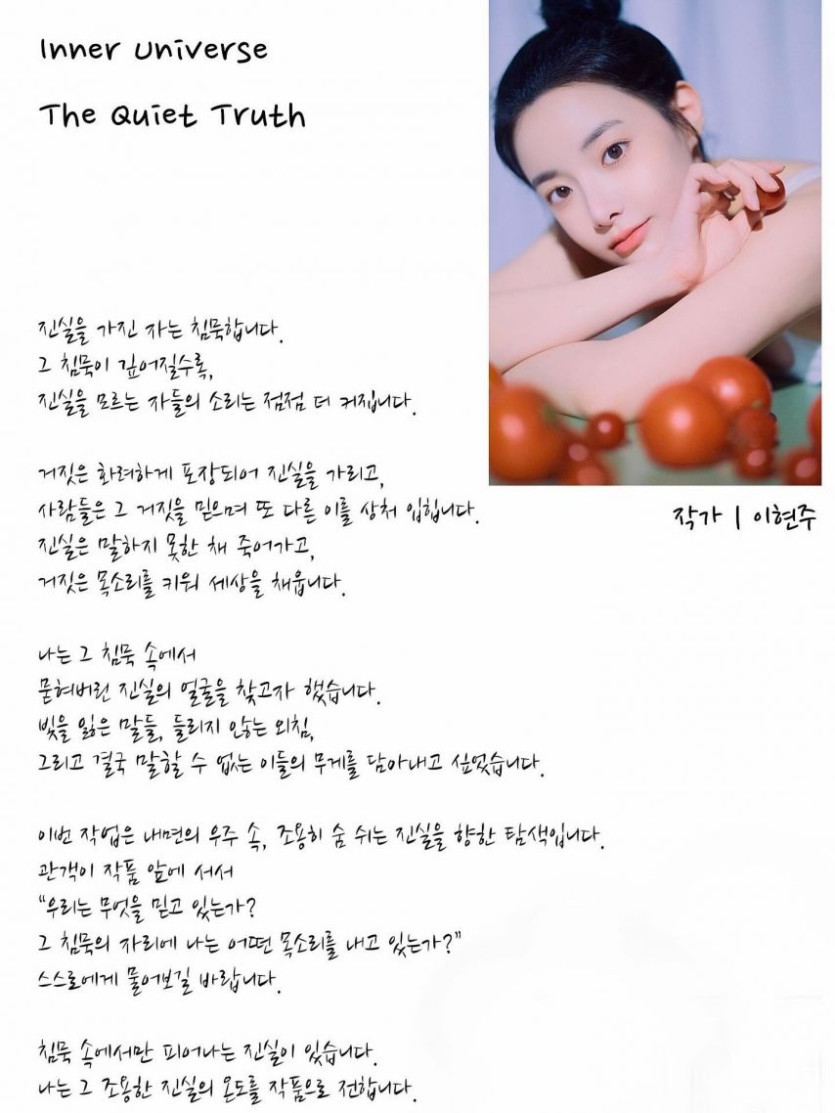 Inner Universe
The Quiet Truth
진실을 가진 자는 침묵합니다.
그 침묵이 깊어질수록,
진실을 모르는 자들의 소리는 점점 더 커집니다.
거짓은 화려하게 포장되어 진실을 가리고,
사람들은 그 거짓을 믿으며 또 다른 이를 상처 입힙니다.
진실은 말하지 못한 채 죽어가고,
거짓은 목소리를 키워 세상을 채웁니다.
작가 | 이현주
나는 그 침묵 속에서
묻혀버린 진실의 얼굴을 찾고자 했습니다.
빛을 잃은 말들, 들리지 않는 외침,
그리고 결국 말할 수 없는 이들의 무게를 담아내고 싶었습니다.
이번 작업은 내면의 우주 속, 조용히 숨 쉬는 진실을 향한 탐색입니다.
관객이 작품 앞에 서서
“우리는 무엇을 믿고 있는가?
그 침묵의 자리에 나는 어떤 목소리를 내고 있는가?”
스스로에게 물어보길 바랍니다.
침묵 속에서만 피어나는 진실이 있습니다.
나는 그 조용한 진실의 온도를 작품으로 전합니다.